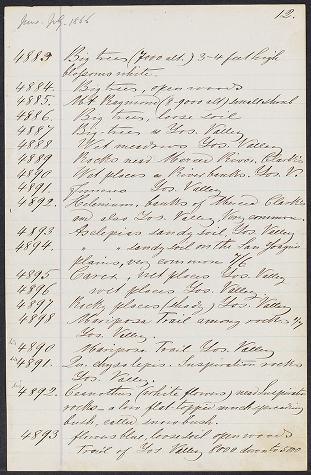 June - July. 1866
12.
4883 Big trees (7000 alt.) 3-4 feet high
blossoms white.
4884. Big trees, open woods
4885. Mt Raymond (8-9000 alt) small shrub
4886. Big trees, loose soil
4887 Big trees & Yos. Valley
4888 Wet meadows Yos. Valley
4889 Rocks near Merced River, Clarks
4890 Wet places & River banks. Yos. V.
4891. Yos. Valley
4892. Helenium, banks of Merced Clarks
and also Yos. Valley, very common.
4893 Asclepias sandy soil, Yos. Valley
4894. " " sandy soil on the San Joaquin
plains, very common 7/6
4895 Carex, wet places Yos. Valley
4896 wet places Yos. Valley.
4897 Rocky places (shady) Yos. Valley
4898 Mariposa Trail among rocks 7/7
Yos. Valley.
4890 Mariposa Trail Yos. Valley
4891. Qu. chrysolepis. Inspiration rocks
Yos. Valley.
4892. Ceanothus (white flowers) near Inspiration
rocks - a low flat topped much spreading
bush, called snowbush.
4893 flowers blue, loose soil open woods
Trail of Yos Valley 8000 down to 5000